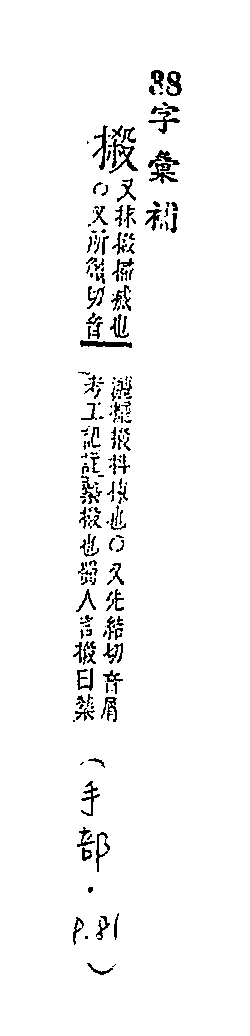 38字彙補
摋
又抹摋掃滅也
○又所蟹切音
灑摋抖擻也○又先結切音屑
考工記註槷摋也蜀人言摋曰槷
(手部·P.81)